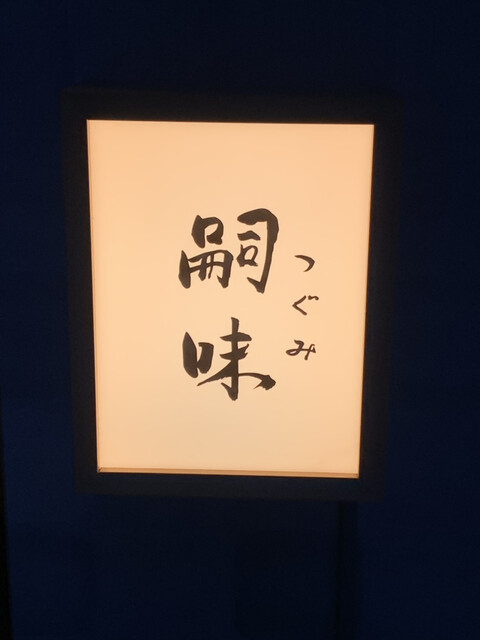 嗣味
つぐみ